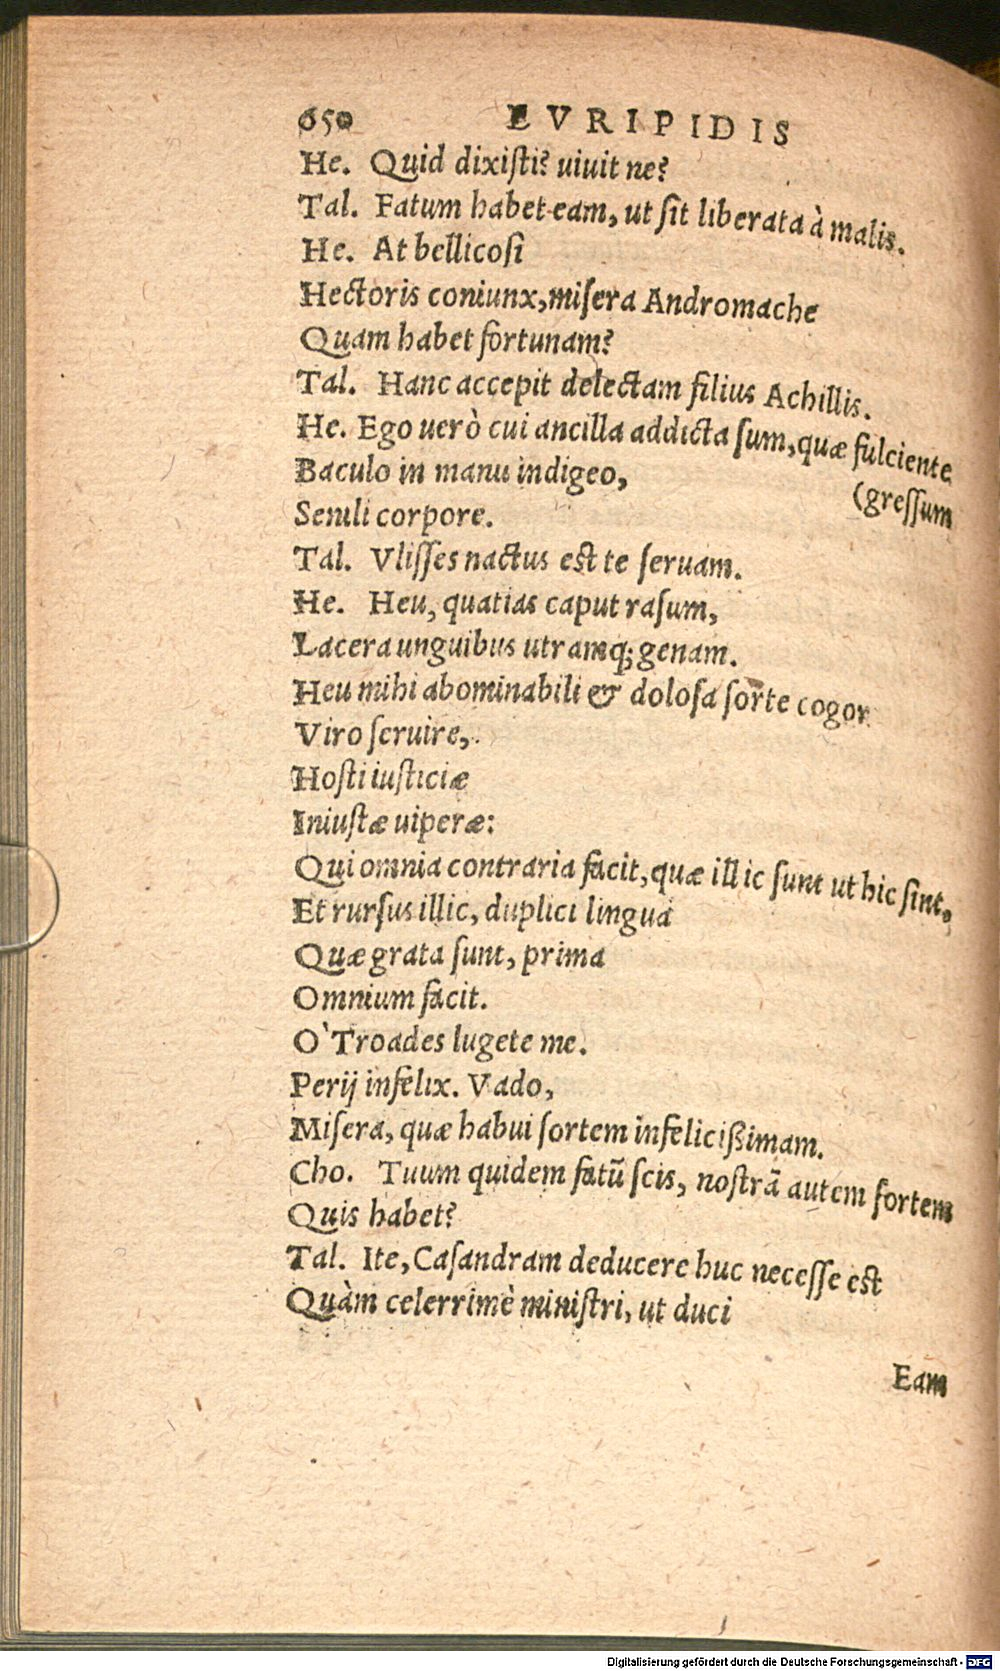 650 EVRIPIDIS
He. Quid dixiſti? uiuit ne?
Tal. Fatum habet eam, ut ſit liberata à malis.
He. At bellicoſi
Hectoris coniunx, miſera Andromache
Quam habet fortunam?
Tal. Hanc accepit delectam filius Achillis.
He. Ego uerò cui ancilla addicta ſum, quæ fulciente
Baculo in manu indigeo, (greſſum
Senili corpore.
Tal. Vliſſes nactus eſt te ſeruam.
He. Heu, quatias caput raſum,
Lacera unguibus utramq; genam.
Heu mihi abominabili & doloſa ſorte cogor
Viro ſeruire,
Hoſti iuſticiæ
Iniuſtæ uiperæ:
Qui omnia contraria facit, quæ illic ſunt ut hic ſint,
Et rurſus illic, duplici lingua
Quæ grata ſunt, prima
Omnium facit.
O` Troades lugete me.
Perij infelix. Vado,
Miſera, quæ habui ſortem infelicißimam.
Cho. Tuum quidem fatũ ſcis, noſtrã autem ſortem
Quis habet?
Tal. Ite, Caſandram deducere huc neceſſe eſt
Quàm celerrimè miniſtri, ut duci
Eam
Digitalisierung gefördert durch die Deutsche Forschungsgemeinschaft - DFG